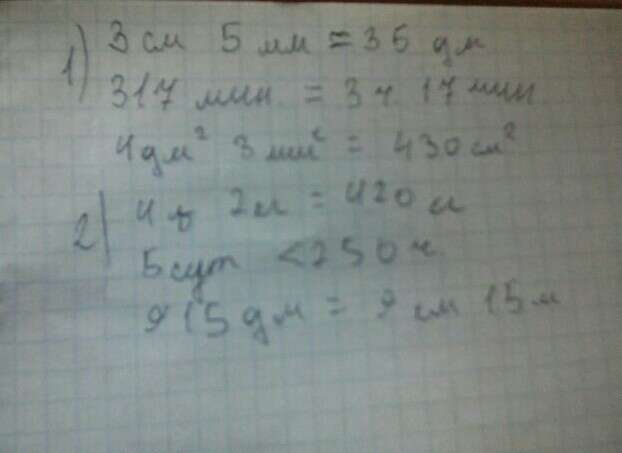 1) 3 см 5 мм = 35 дм
317 мин = 3 ч 17 мин
4 дм² 3 мм² = 430 см²
2) 4 2 = 420
5 сут < 250 ч
915 дм = 9 см 15 м